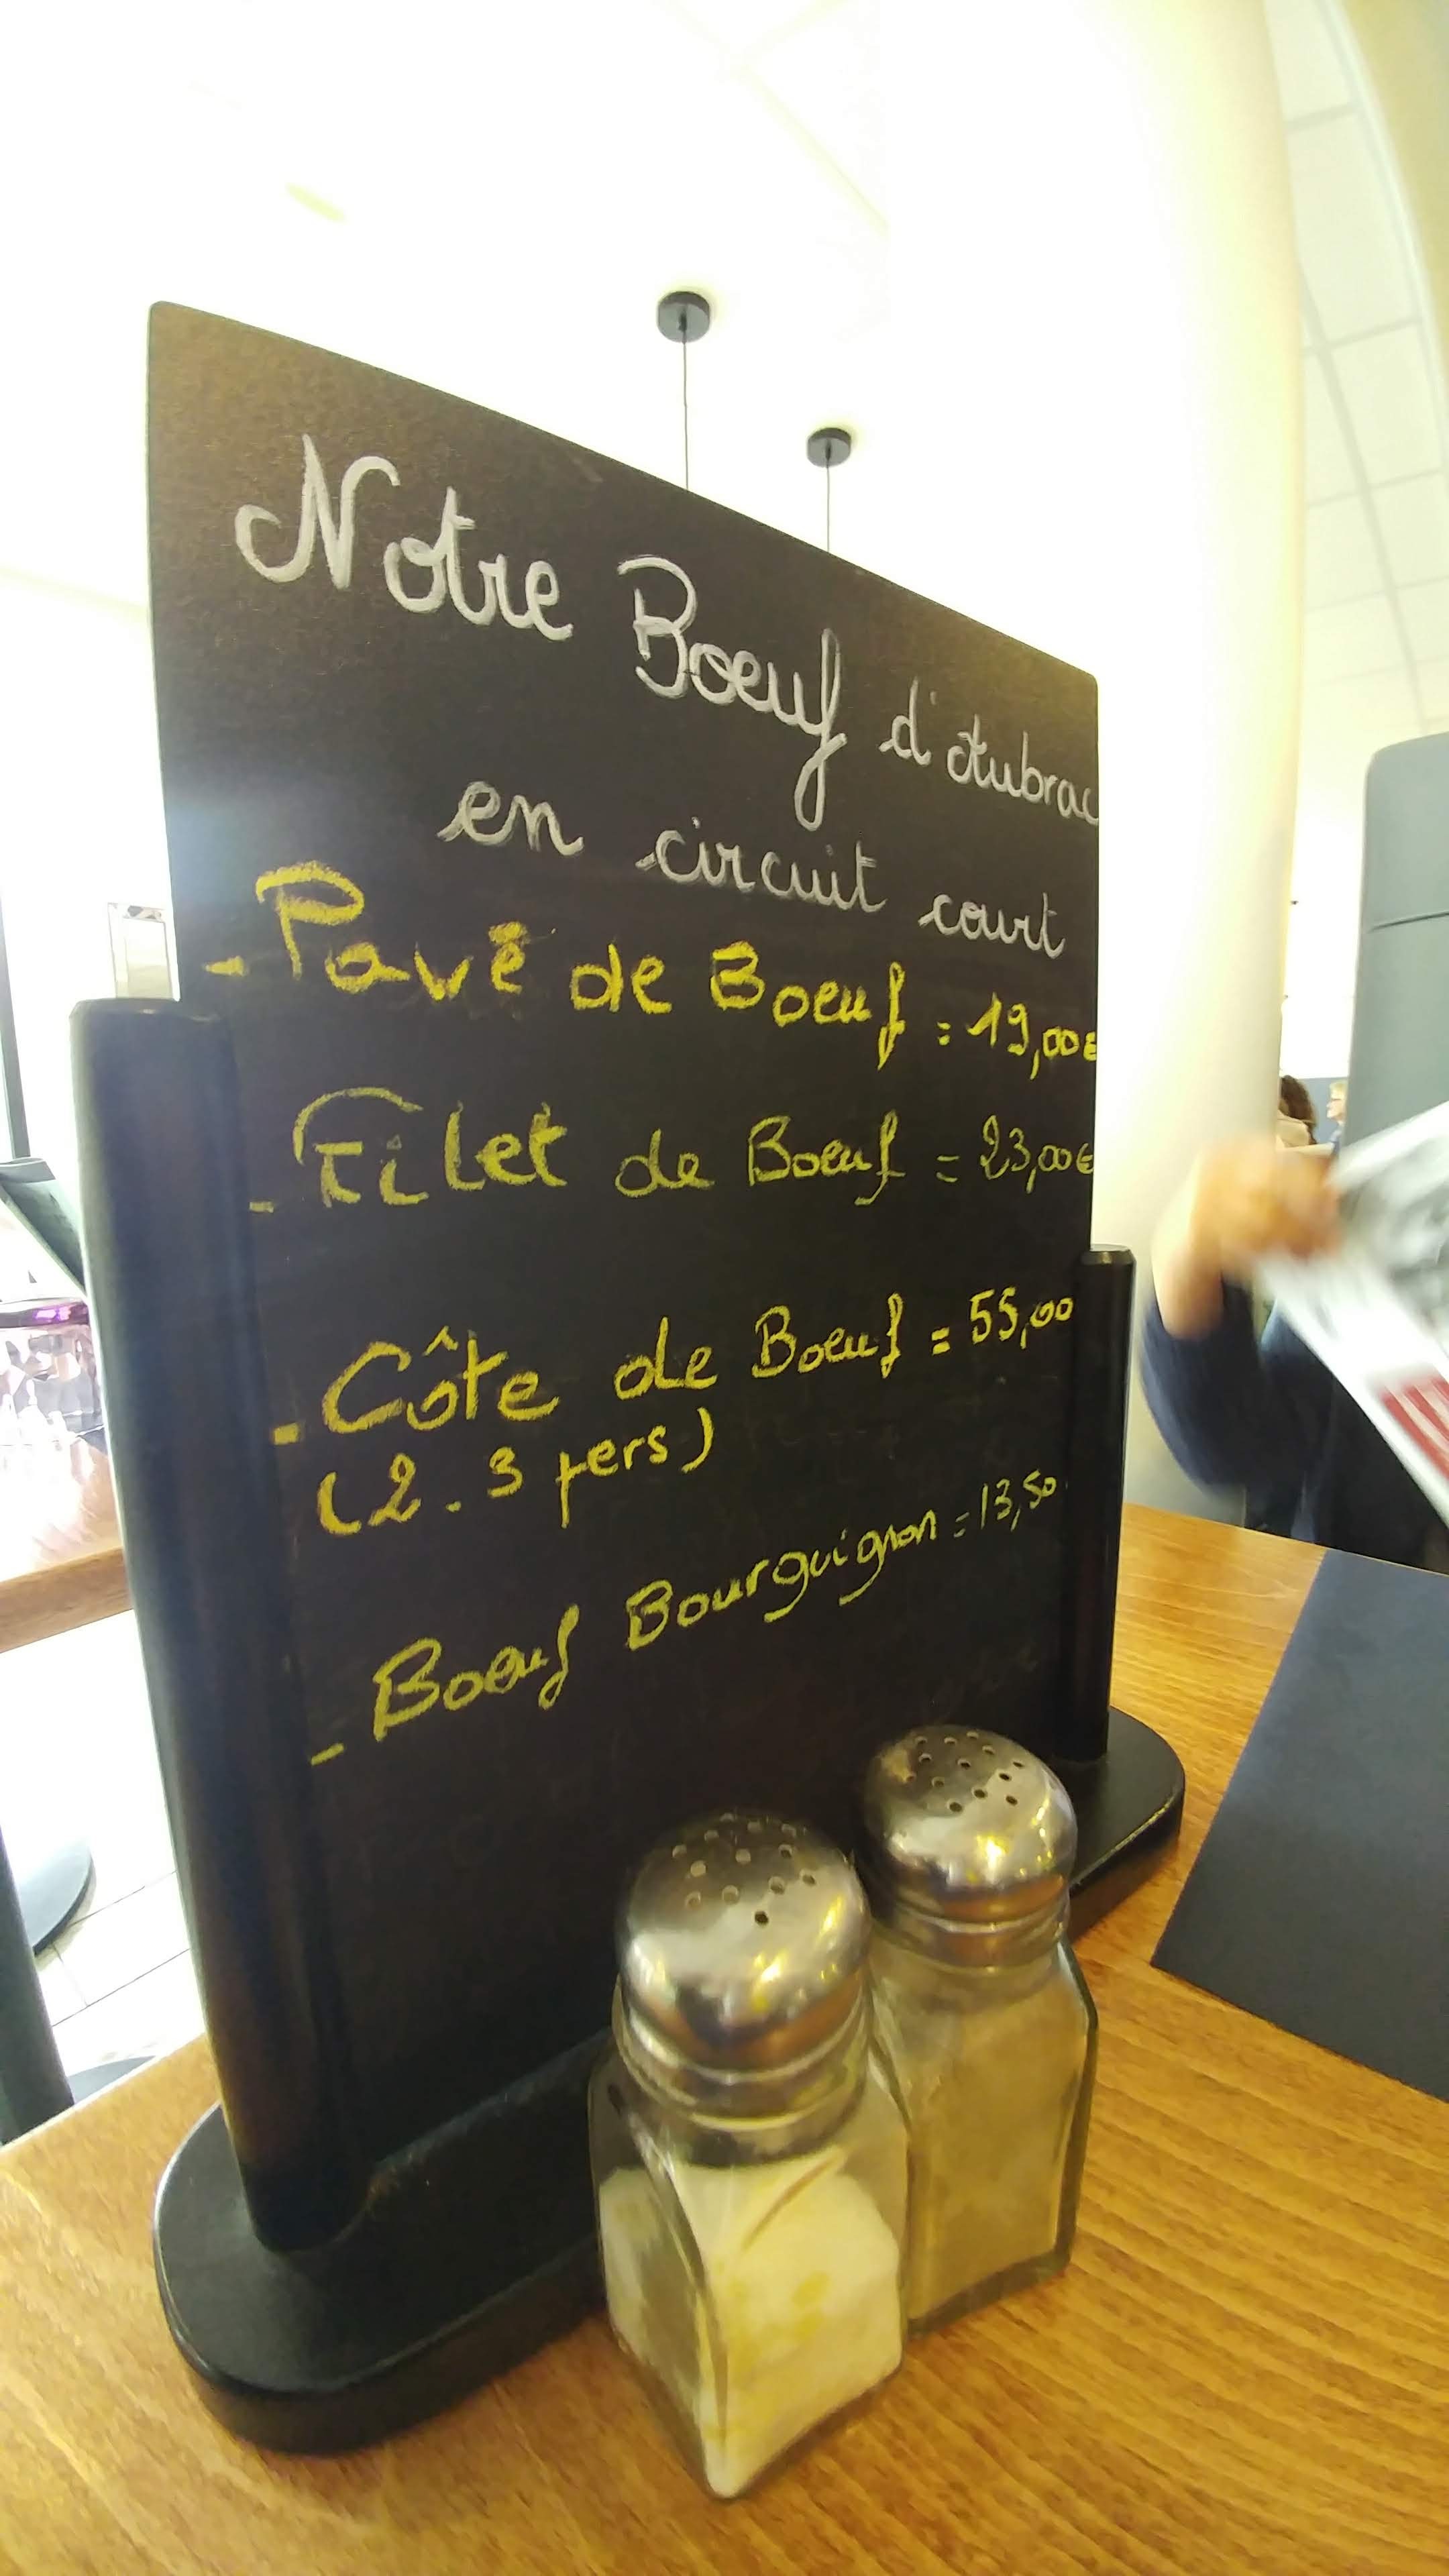 Notre Boeuf d'Aubrac
en circuit court
- Pavé de Boeuf = 19,00€
- Filet de Boeuf = 23,00€
- Côte de Boeuf = 55,00
(2.3 pers)
- Boeuf Bourguignon = 13,50